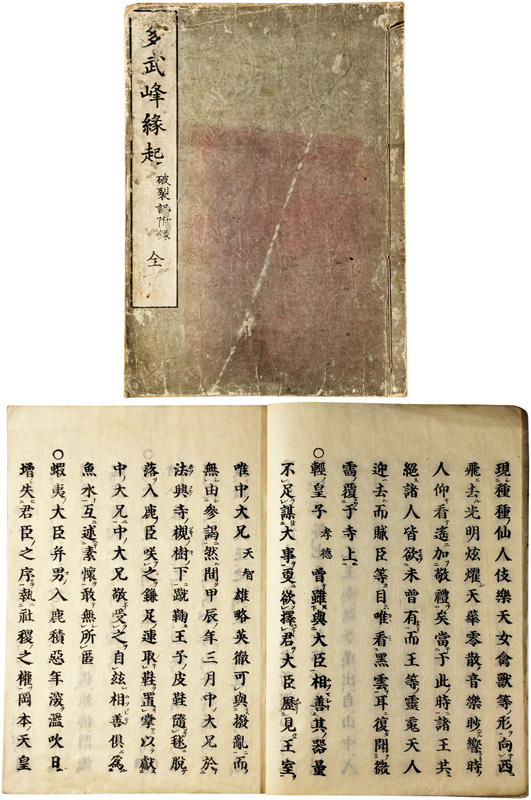 多武峰縁起
破裂記附録
全
現種種仙人伎樂天女禽獸等形向西
飛去光明炫耀天華零散音樂眇響時
人仰看遙加敬禮矣當于此時諸王共
絕諸人皆欲未曾有而王等靈兎天人
迎去而賊臣等目唯看黑雲耳復聞微
雷覆于寺上
〇輕皇子孝德曾雖與大臣相善其器量
不足謀大事更欲擇君大臣歷見王室
唯中大兄天智雄略英徹可與撥亂而
無由參謁然間甲辰年三月中大兄於
法興寺槻樹下蹴鞠王子皮鞋隨毬脫
落入鹿臣咲之鎌足連取鞋置掌以獻
中大兄中大兄敬受之自玆相善俱爲
魚水互述素懷敢無所匿
〇蝦夷大臣弁男入鹿積惡年深濫吹日
增失君臣之序執社稷之權岡本天皇